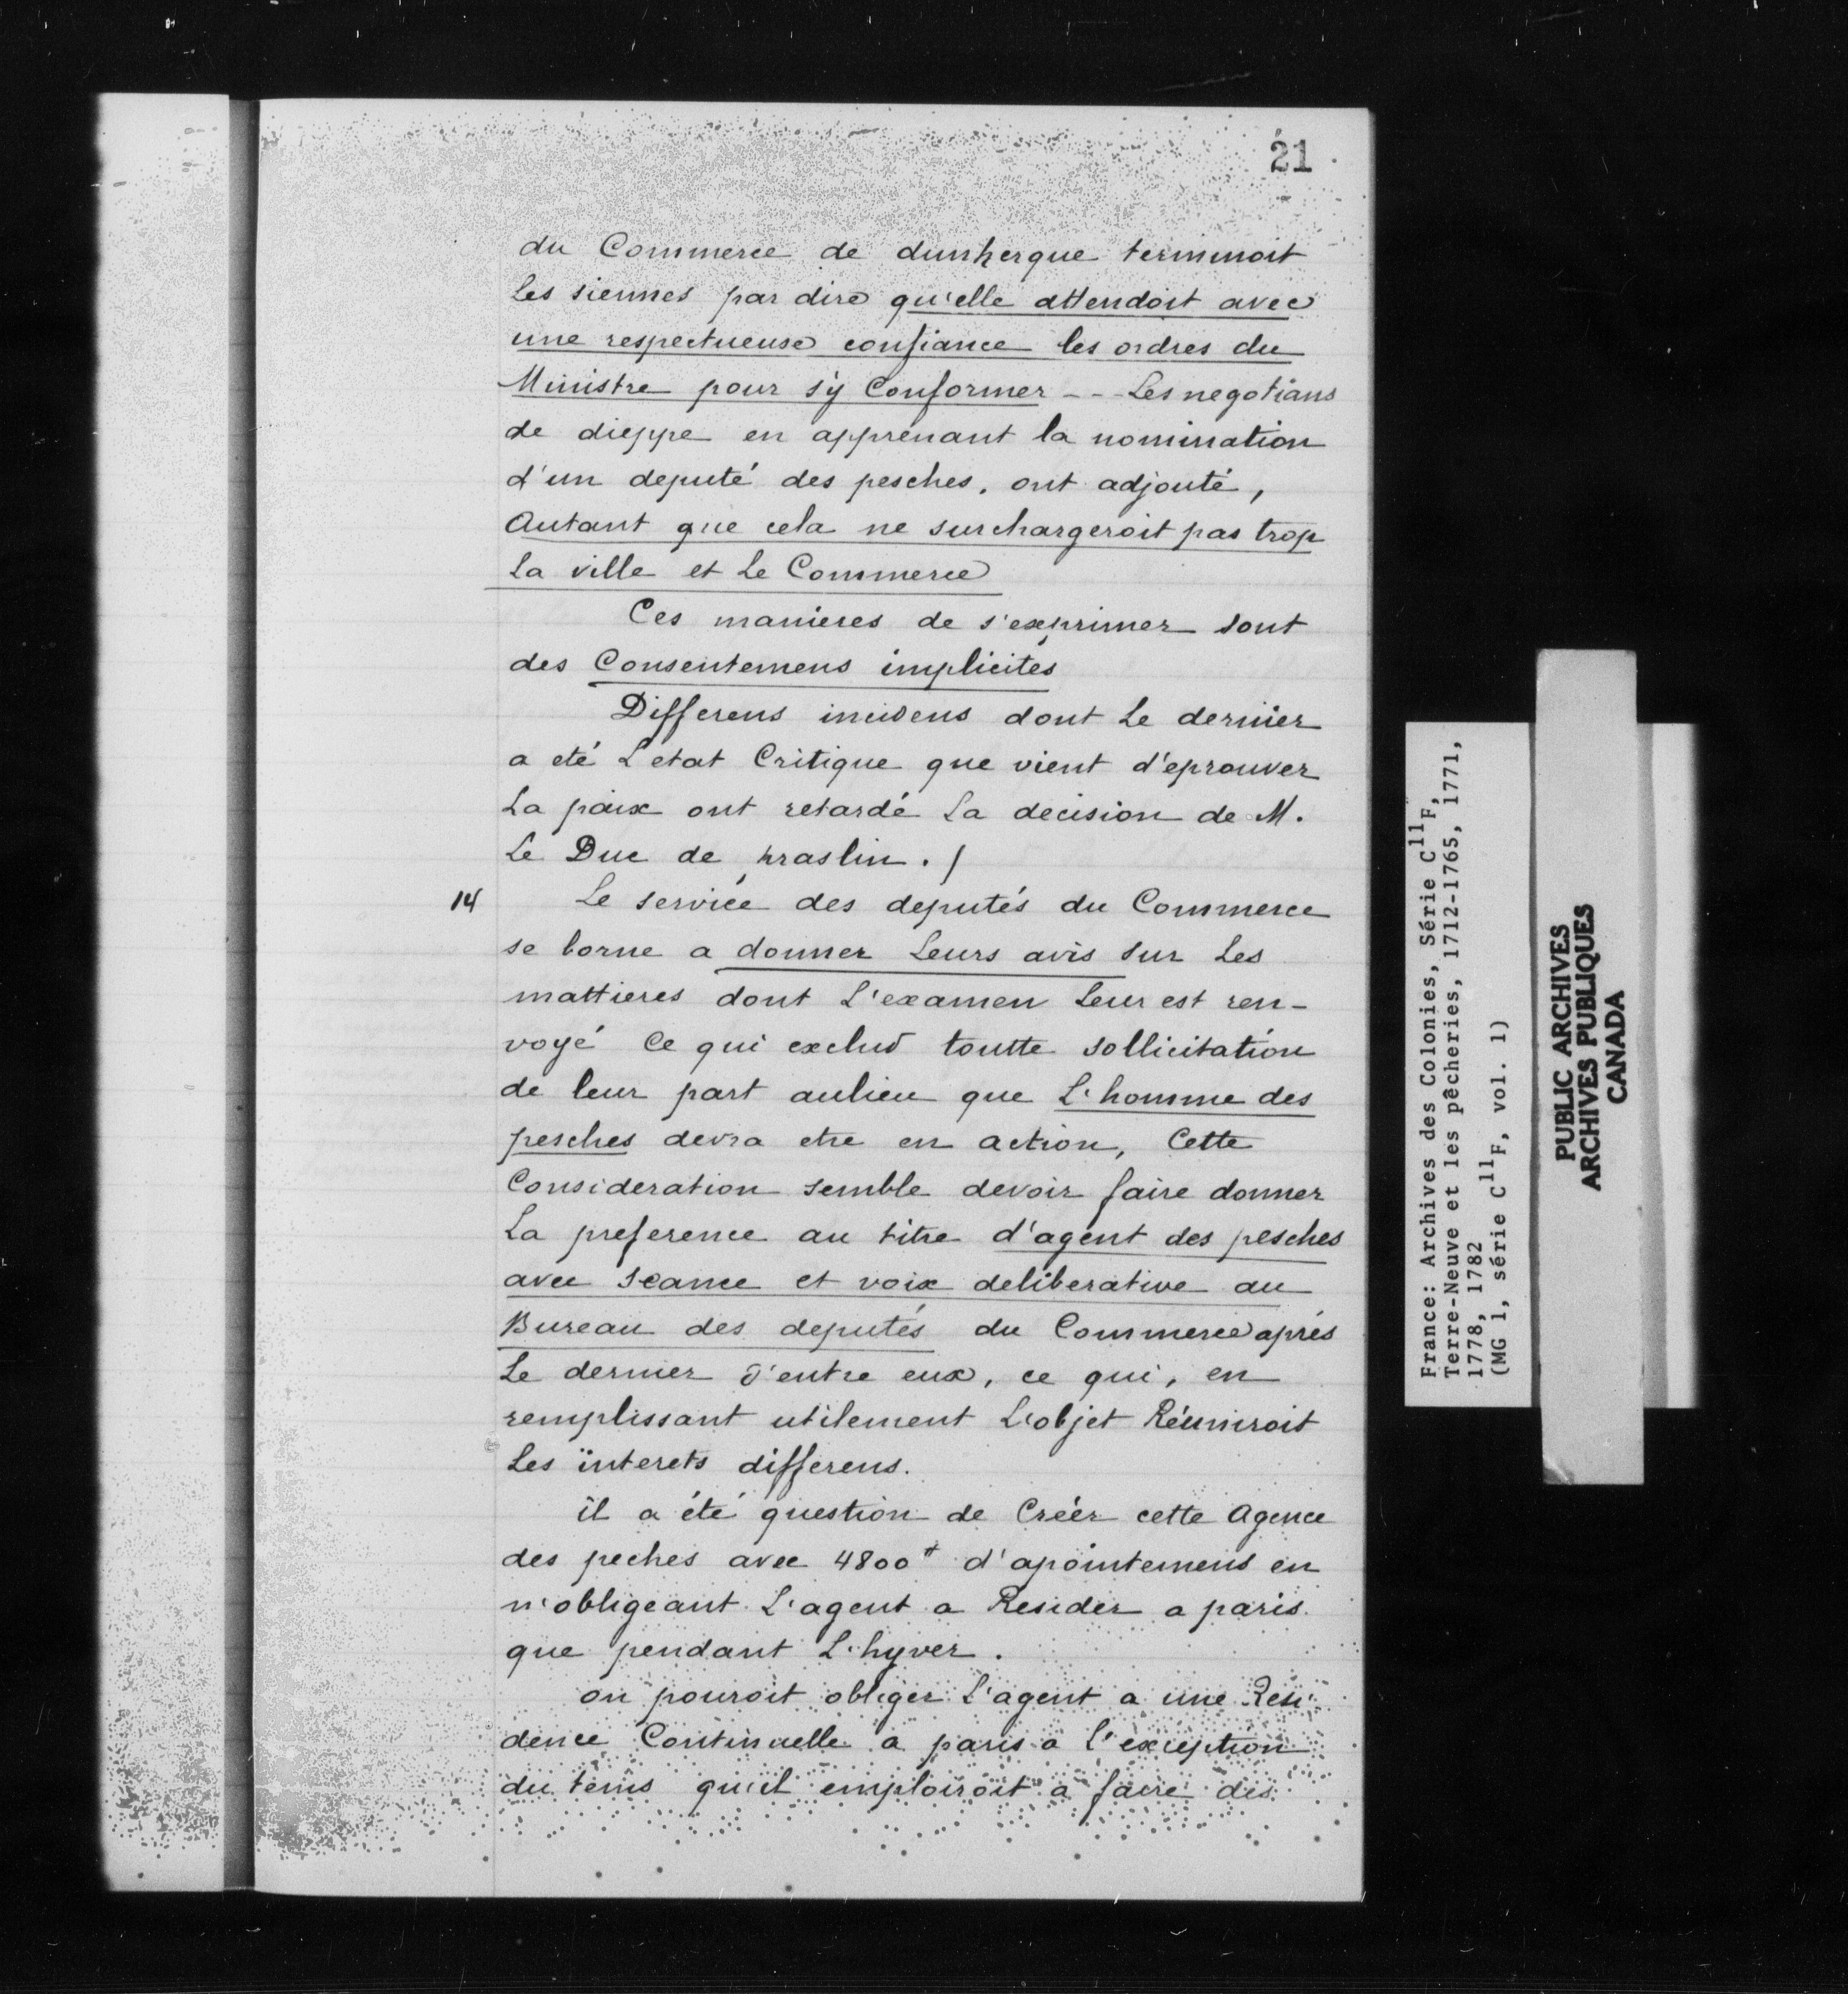 21
du Commerce de dunkerque terminoit
les siennes par dire qu'elle attendoit avec
une respectueuse confiance les ordres du
Ministre pour s'y Conformer - - - Les negotians
de dieppe en apprenant la nomination
d'un deputé des pesches, ont adjouté,
Autant que cela ne surchargeroit pas trop
La ville et Le Commerce
Ces manieres de s'exprimer sont
des Consentemens implicites
Differens incidens dont Le dernier
a eté L'etat Critique que vient d'eprouver
La paix ont retardé La decision de M.
Le Duc de praslin . /
14 Le service des deputés du Commerce
se borne a donner Leurs avis sur Les
mattieres dont L'examen Leur est ren-
voyé Ce qui exclud toutte sollicitation
de leur part aulieu que L'homme des
pesches devra etre en action, Cette
Consideration semble devoir faire donner
La preference au titre d'agent des pesches
avec seance et voix deliberative au
Bureau des deputés du Commerce aprés
Le dernier d'entre eux, ce qui, en
remplissant utilement L'objet Réuniroit
Les ïnterets differens.
il a été question de Créer cette Agence
des peches avec 4800# d'apointemens en
n'obligeant L'agent a Resider a paris
que pendant L'hyver.
on pouroit obliger L'agent a une Resi-
dence Continuelle a paris a l'exception
du tems qu'il emploiroit a faire des
France: Archives des Colonies, Série C11F,
Terre-Neuve et les pêcheries, 1712-1765, 1771,
1778, 1782
(MG 1, série C11F, vol. 1)
PUBLIC ARCHIVES
ARCHIVES PUBLIQUES
CANADA